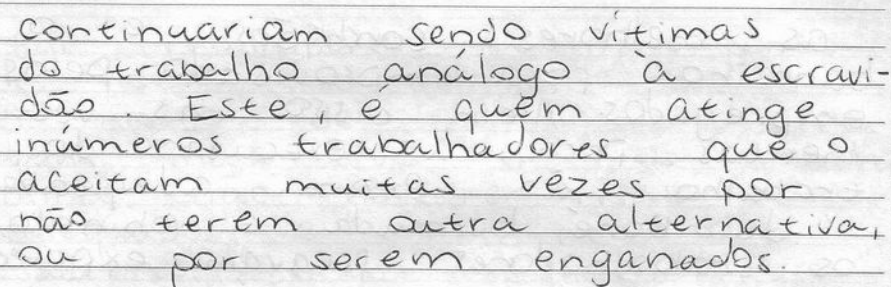 continuariam sendo vítimas
do trabalho análogo à escravi-
dão. Este, é quem atinge
inúmeros trabalhadores que o
aceitam muitas vezes por
não terem outra alternativa,
ou por serem enganados.